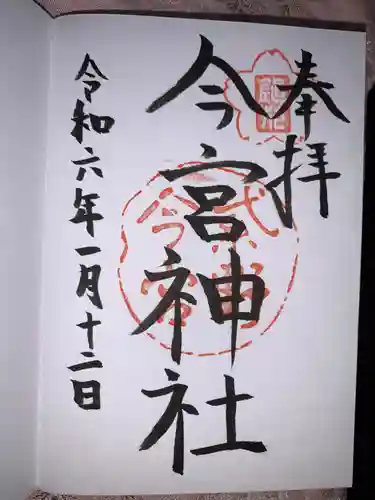 奉拝
今宮神社
令和六年一月十二日